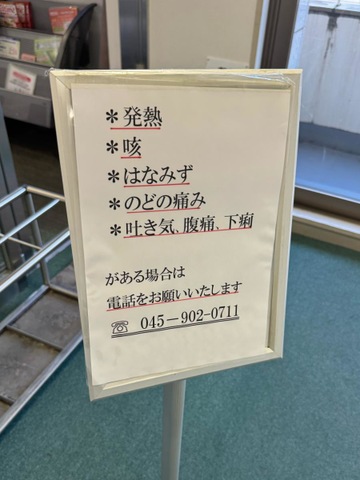 ＊発熱
＊咳
＊はなみず
＊のどの痛み
＊吐き気、腹痛、下痢
がある場合は
電話をお願いいたします
☏ 045－902-0711